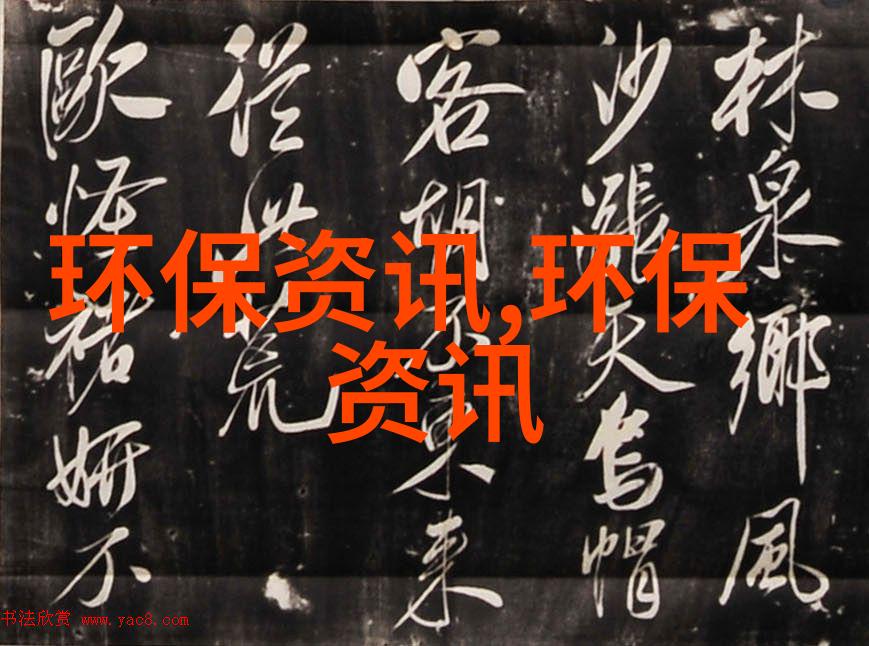 林泉鄉風
沙漲天烏帽
客胡不東來
從洪荒
歐怪褚妍不
环保资讯,环保
资讯
书法欣赏 www.yac8.com